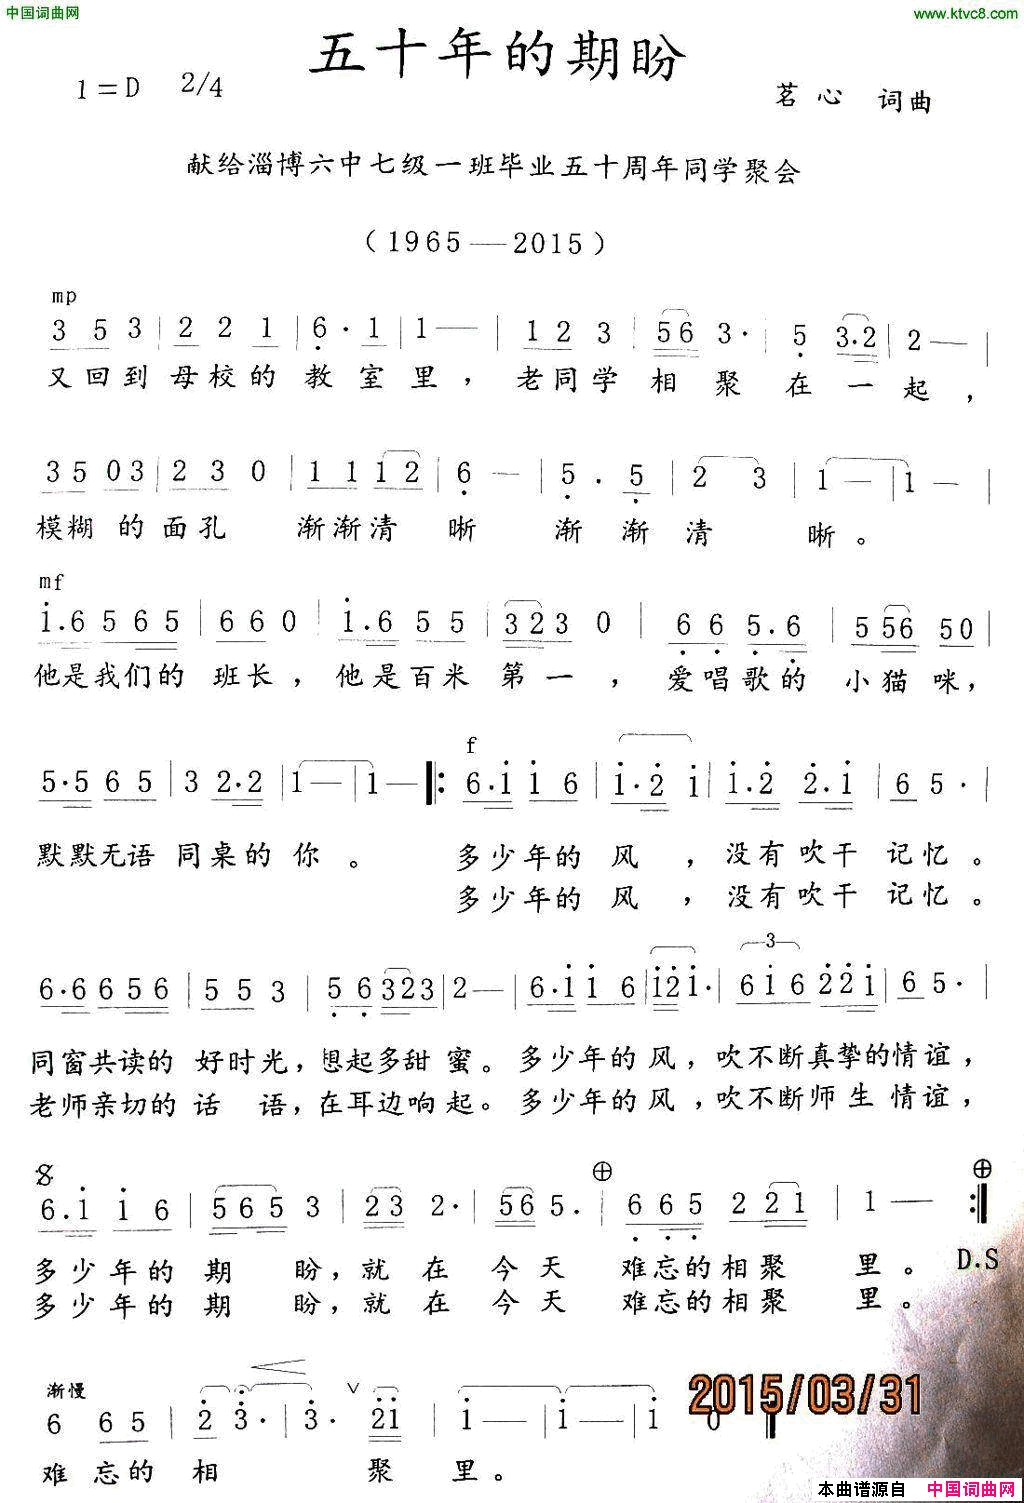 中国词曲网
www.ktvc8.com
五十年的期盼
1=D 2/4
茗心 词曲
献给淄博六中七级一班毕业五十周年同学聚会
(1965—2015)
mp
3 5 3 | 2 2 1 | 6· 1 | 1— | 1 2 3 | 56 3· | 5 3.2 | 2— |
又回到母校的教室里,老同学相聚在一起,
35 03 | 2 3 0 | 11 12 | 6 — | 5 . 5 | 2 3 | 1 — | 1 — |
模糊的面孔 渐渐清晰 渐渐清晰。
mf
1.6 5 6 5 | 6 6 0 | 1.6 5 5 | 323 0 | 6 6 5.6 | 5 56 50 |
他是我们的班长,他是百米第一,爱唱歌的小猫咪,
f
5·5 6 5 | 3 2·2 | 1— | 1— |: 6·1 1 6 | 1·2 1 | 1.2 2.1 | 6 5· |
默默无语同桌的你。 多少年的风,没有吹干记忆。
多少年的风,没有吹干记忆。
3
6·6 6 5 6 | 5 5 3 | 5 6 323 | 2— | 6·1 1 6 | 121· | 616 221 | 6 5· |
同窗共读的好时光,想起多甜蜜。多少年的风,吹不断真挚的情谊,
老师亲切的话语,在耳边响起。多少年的风,吹不断师生情谊,
6.1 1 6 | 565 3 | 23 2· | 56 5. | 6 6 5 2 21 | 1 — :|
多少年的期盼,就在今天难忘的相聚里。 D.S
多少年的期盼,就在今天难忘的相聚里。
渐慢
6 65 | 2 3· | 3· 21 | 1— | 1— | 1 0 |
难忘的相聚里。
2015/03/31
本曲谱源自 中国词曲网